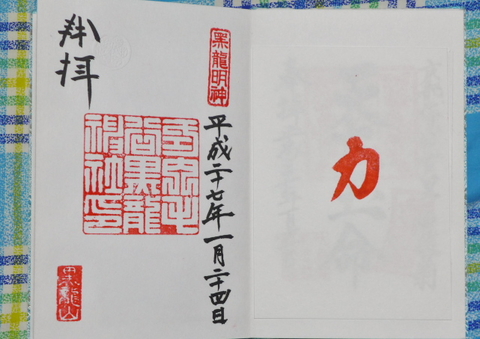 力
黒龍明神
平成二十七年一月二十四日
奉拝
黒龍山